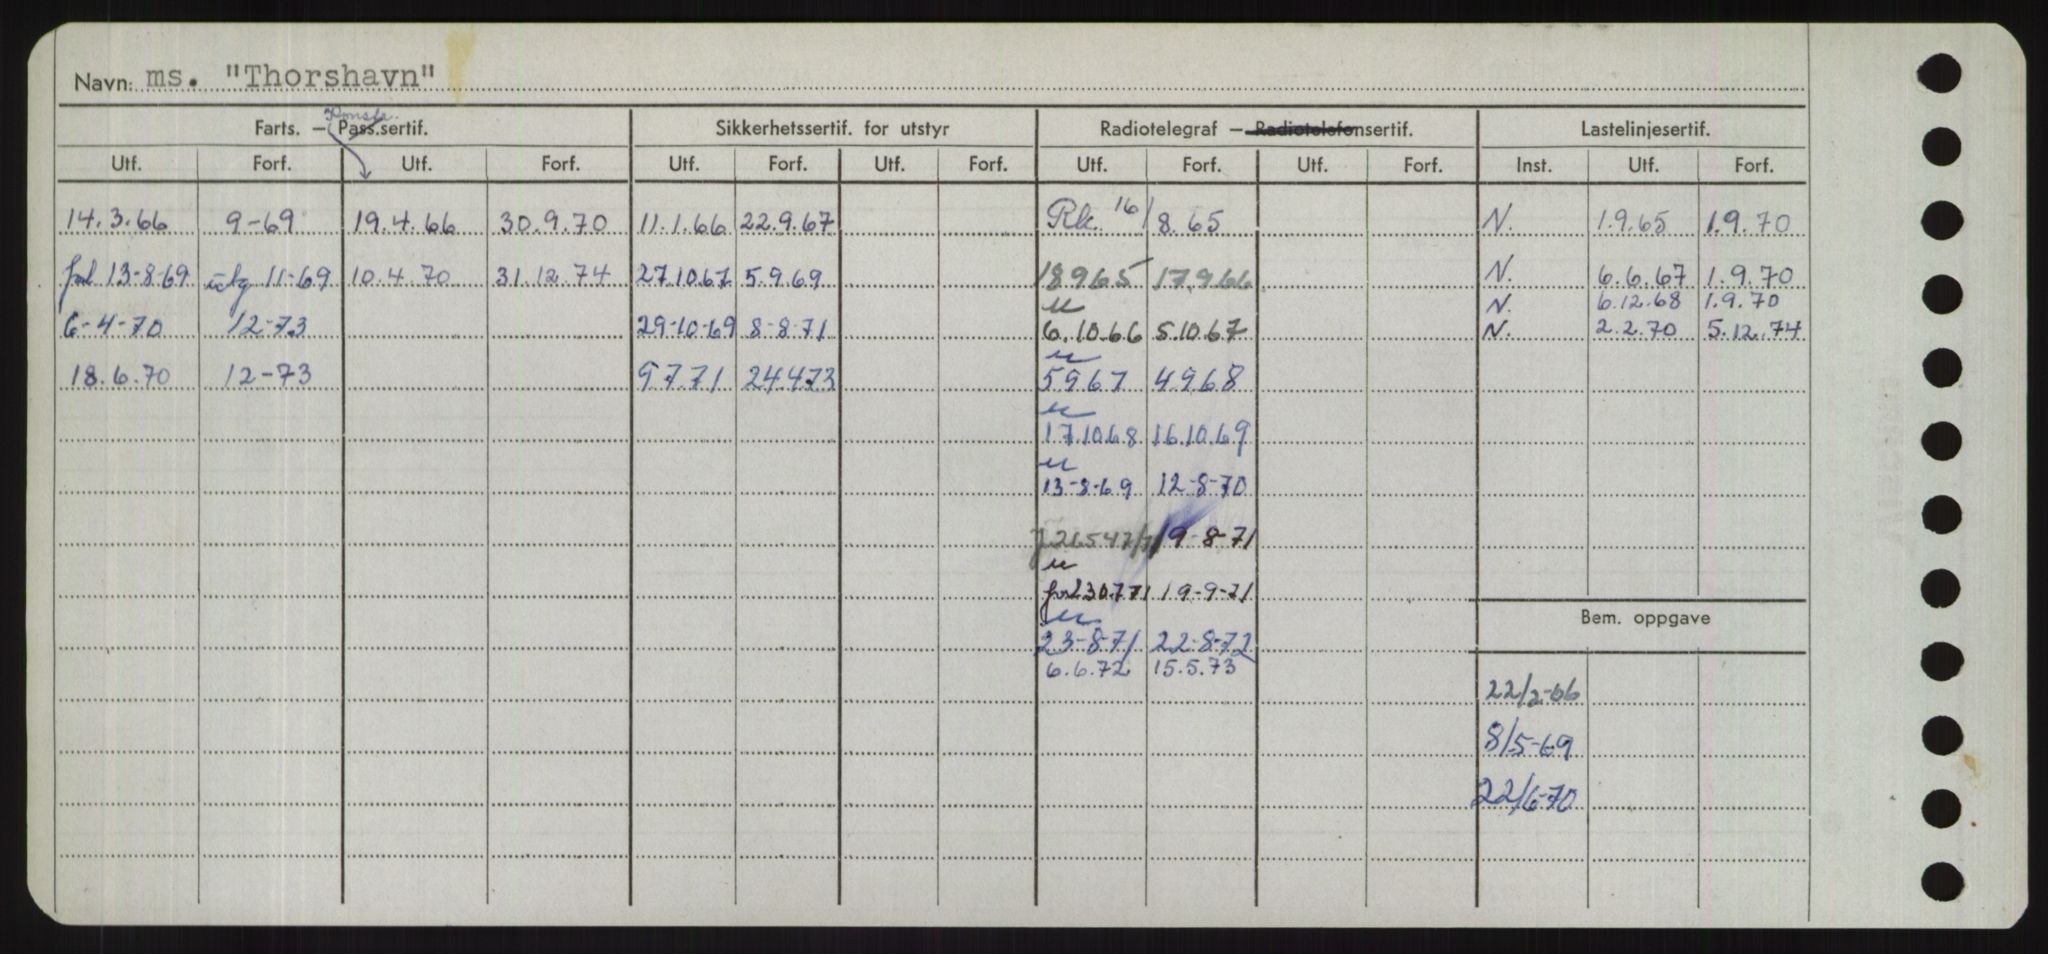 Navn: ms. "Thorshavn"
Konstr.
Farts. – Pass.sertif. Sikkerhetssertif. for utstyr Radiotelegraf – Radiotelefonsertif. Lastelinjesertif.
Utf. Forf. Utf. Forf. Utf. Forf. Utf. Forf. Utf. Forf. Utf. Forf. Inst. Utf. Forf.
14.3.66 9-69 19.4.66 30.9.70 11.1.66 22.9.67 Rk. 16/8.65 N. 1.9.65 1.9.70
forl 13-8-69 utg 11-69 10.4.70 31.12.74 27.10.67 5.9.69 18965 17.9.66 N. 6.6.67 1.9.70
u N. 6.12.68 1.9.70
6-4-70 12-73 29-10-69 8-8-71 6.10.66 5.10.67 N. 2.2.70 5.12.74
u
18.6.70 12-73 9771 24473 5967 4968
u
17.10.68 16.10.69
u
13-8-69 12-8-70
19-8-71
u
forl 30771 19-9-71
Bem. oppgave
u
23-8-71 22-8-72
6.6.72 15.5.73
22/2-66
8/5-69
22/6-70